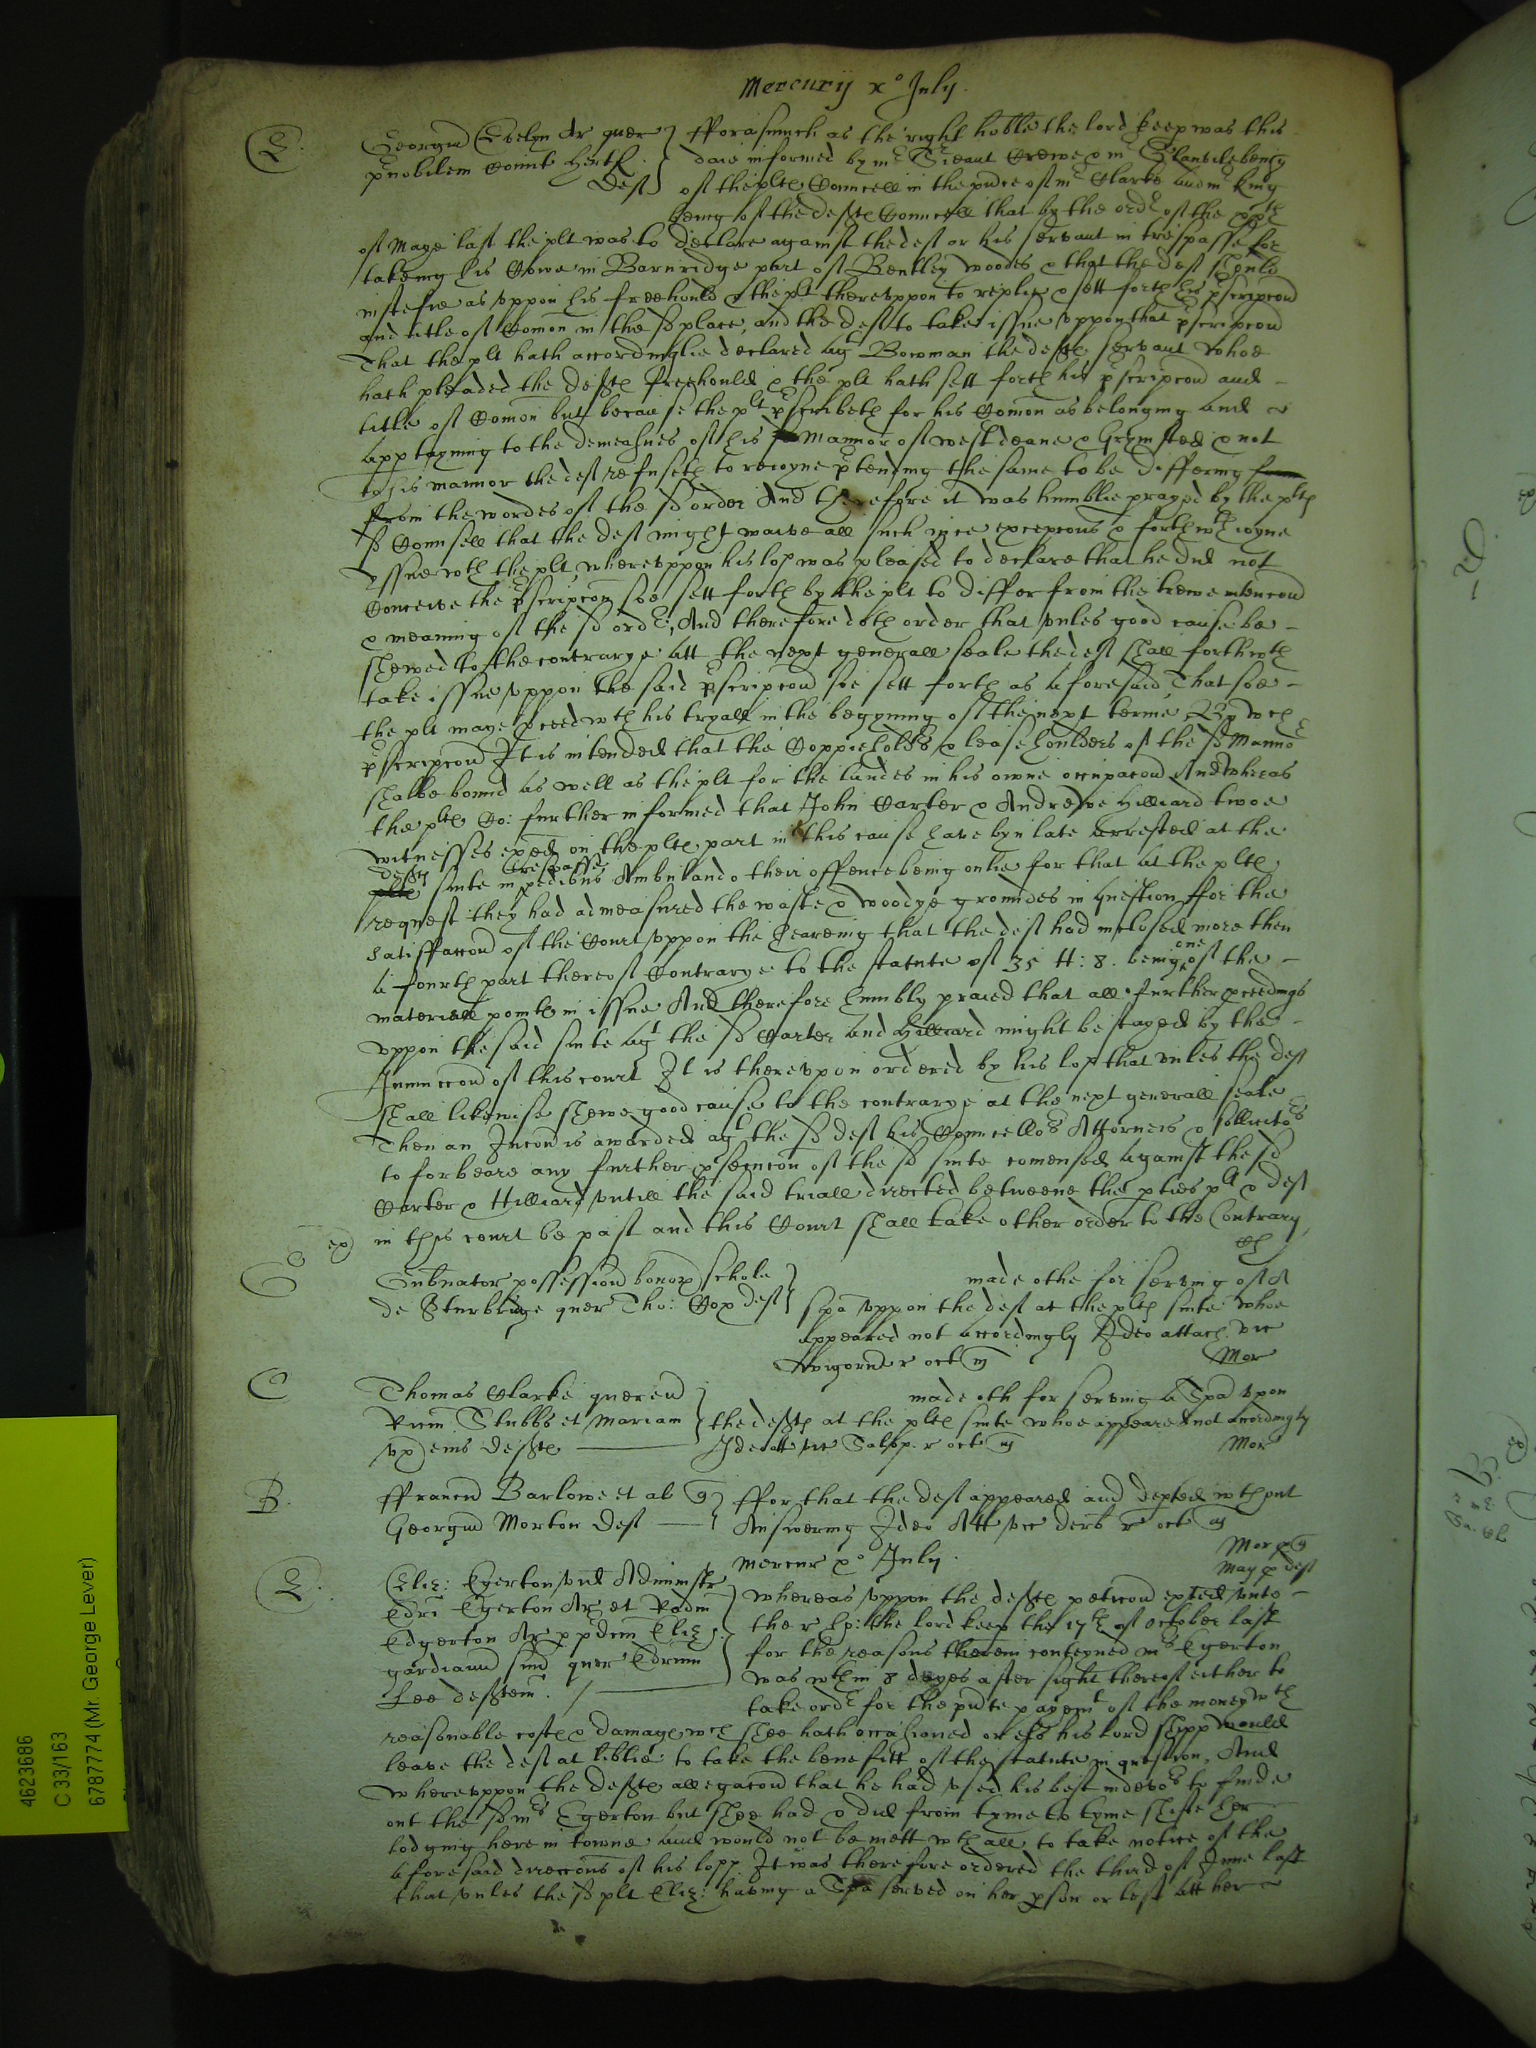 Mercurij x° July.
E. Georgius Evelyn Ar quer } fforasmuch as the right hoble the lord keep was this
p'nobilem Comit Hertf. } daie informed by mr S'ieant Crewe & mr Glanvile being
Deft } of the plts Councell in the p'nce of mr Clarke and mr King
being of the defts Councell that by the ordr of the
of Maye last the plt was to declare against the deft or his servant in trespasse for
takeing his Cowe in Barnridge part of Bentley woodes & that the deft should
iustefie as uppon his freehould & the plt thereuppon to replie & sett forth his p'scripcon
and title of Comon in the sd place, and the deft to take issue uppon that p'scripcon
That the plt hath accordinglie declared agt Bowman the defts servant whoe
hath pleaded the defts freehould & the plt hath sett forth his p'scripcon and -
title of Comon but because the plt p'scribeth for his Comon as belonging and
apptayning to the demeasnes of his Mannor of westdeane & Grymsted & not
to his mannor the deft refuseth to ioyne p'tending the same to be differing
from the wordes of the sd order And therefore it was humblie prayed by the plts
sd Counsell that the deft might waive all such nice excepcons & forthwth ioyne
yssue wth the plt whereuppon his lop was pleased to declare that he did not
Conceive the p'scripcon soe sett forth by the plt to differ from the trewe intencon
& meaning of the sd ordr, And therefore doth order that unles good cause be -
shewed to the contrarye att the next generall seale the deft shall forthwth
take issue uppon the said p'scripcon soe sett forth as aforesaid That soe -
the plt maye p'ceed wth his tryall in the begyning of the next terme, By wch
p'scripcon It is intended that the Coppieholds & leasehoulders of the sd Mannor
shalbe bound as well as the plt for the landes in his owne occupacon And whereas
the plts Co: further informed that John Carter & Andrewe Hilliard twoe
witnesses exed on the plts part in this cause have byn late arrested at the
defts suite in trespasse pedibus Ambulando their offence being onlie for that at the plts
request they had admeasured the waste & woodye groundes in question ffor the
satisfaccon of the Court uppon the heareing that the deft had inclosed more then
a fourth part thereof Contrarye to the statute of 35 H: 8. being one of the -
materiall pointes in issue And therefore humbly praied that all further p'ceedings
uppon the said suite agt the sd Carter and Hilliard might be stayed by the -
Iniunccon of this court It is thereupon ordered by his lop that unles the deft
shall likewise shewe good cause to the contrarye at the next generall seale
Then an Iniuncon is awarded agt the sd deft his Councellors Attorneis & sollicitors
to forbeare any further p'secucon of the sd suite comensed against the sd
Carter & Hilliard untill the said triall directed betweene the p'ties plt & deft
ex) in this court be past and this Court shall take other order to the Contrary
Gubnator possession bonor schole } made othe for serving of A
de Sturbridge quer Tho: Cox deft } spa uppon the deft at the plts suite whoe
appeared not accordingly Ideo attach vic
Wigorn r oct m
Mor
C Thomas Clarke queren } made oth for serving A Spa upon
Willm Stubbs et Mariam } the defts at the plts suite whoe appeared not accordingly
ux eius defts Ideo att vic Salop. r oct m
Mor
B. ffrancus Barlowe et al q } ffor that the deft appeared and depted wthout
Georgius Morton deft } Answering Ideo Att vic derb r oct m
Mercur x° July.
Mor p q
May p deft
E. Eliz: Egerton vid Administr } whereas uppon the defts peticon exted unto -
Edri Egerton Ar et Radm } the r ho: the lord keep the 17th of October last
Edgerton Ar p pdcm Eliz } for the reasons therein conteyned mrs Egerton
gardianu suu quer Edrum } was wthin 8 dayes after sight thereof either to
Lee deftem. } take ordr for the p'nte payemt of the money wth
reasonable costes & damages wch shee hath occasioned or els his lordshipp would
leave the deft at libtie to take the benefitt of the statute in question, And
whereuppon the defts allegacon that he had used his best indevors to finde
out the sd mrs Egerton but shee had & did from tyme to tyme shifte her
lodging here in towne and would not be mett wthall to take notice of the
aforesaid direccons of his lopp It was therefore ordered the third of June last
that unles the sd plt Eliz: having a Spa served on her pson or left att her
4623686
C 33/163
6787774 (Mr. George Lever)